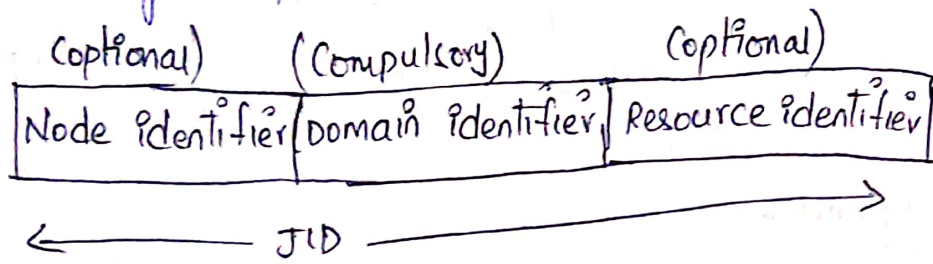 (optional) (Compulsory) (optional)
Node identifier Domain identifier Resource identifier
JID